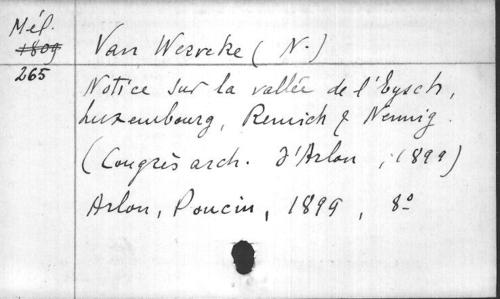 Mél.
1809
265
Van Werveke (N.)
Notice sur la vallée de l'Eysch,
Luxembourg, Remich & Nennig.
(Congrès arch. d'Arlon, 1899)
Arlon, Poncin, 1899, 8º